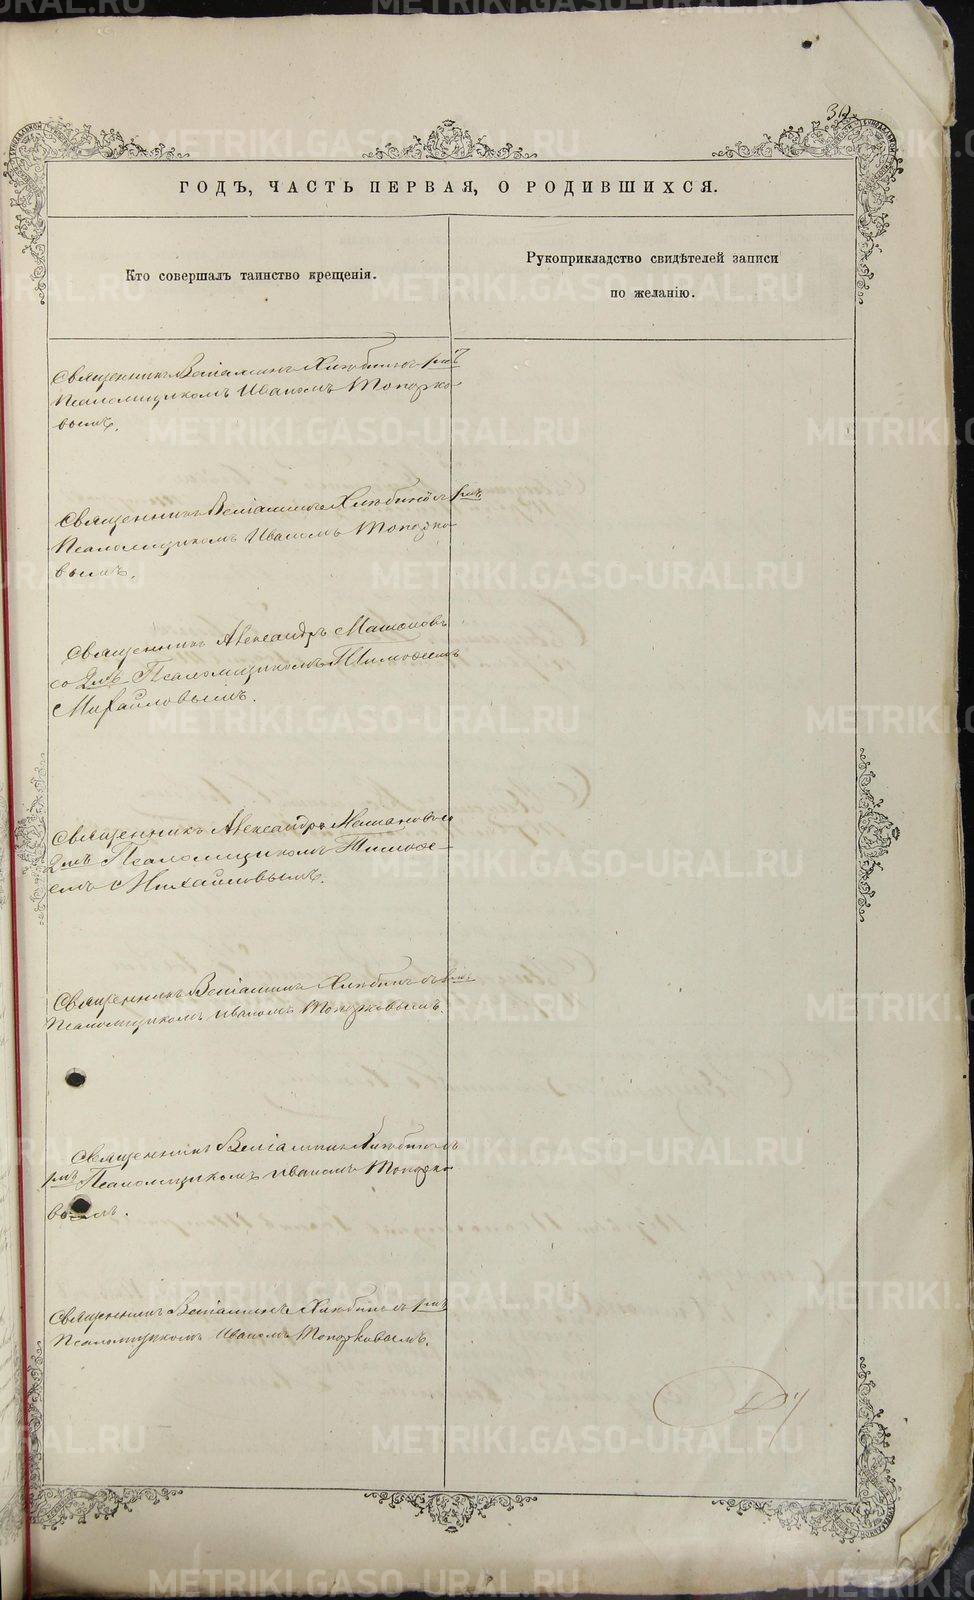 ГОДЪ, ЧАСТЬ ПЕРВАЯ, О РОДИВШИХСЯ.
Кто совершалъ таинство крещенія.
Рукоприкладство свидѣтелей записи
по желанію.
Священникъ Веніаминъ Хлѣбинъ съ 1мъ
Псаломщикомъ Иваномъ Топорко-
вымъ.
Священникъ Веніаминъ Хлѣбинъ съ 1мъ
Псаломщикомъ Иваномъ Топорко-
вымъ.
Священникъ Александръ
со 2мъ Псаломщикомъ Тимофеемъ
Михайловымъ.
Священникъ Александръ
2мъ Псаломщикомъ Тимофе-
емъ Михайловымъ.
Священникъ Веніаминъ Хлѣбинъ съ 1мъ
Псаломщикомъ Иваномъ Топорковымъ.
Священникъ Веніаминъ Хлѣбинъ съ
1мъ Псаломщикомъ Иваномъ Топорко-
вымъ.
Священникъ Веніаминъ Хлѣбинъ съ 1мъ
Псаломщикомъ Иваномъ Топорковымъ.
METRIKI.GASO-URAL.RU